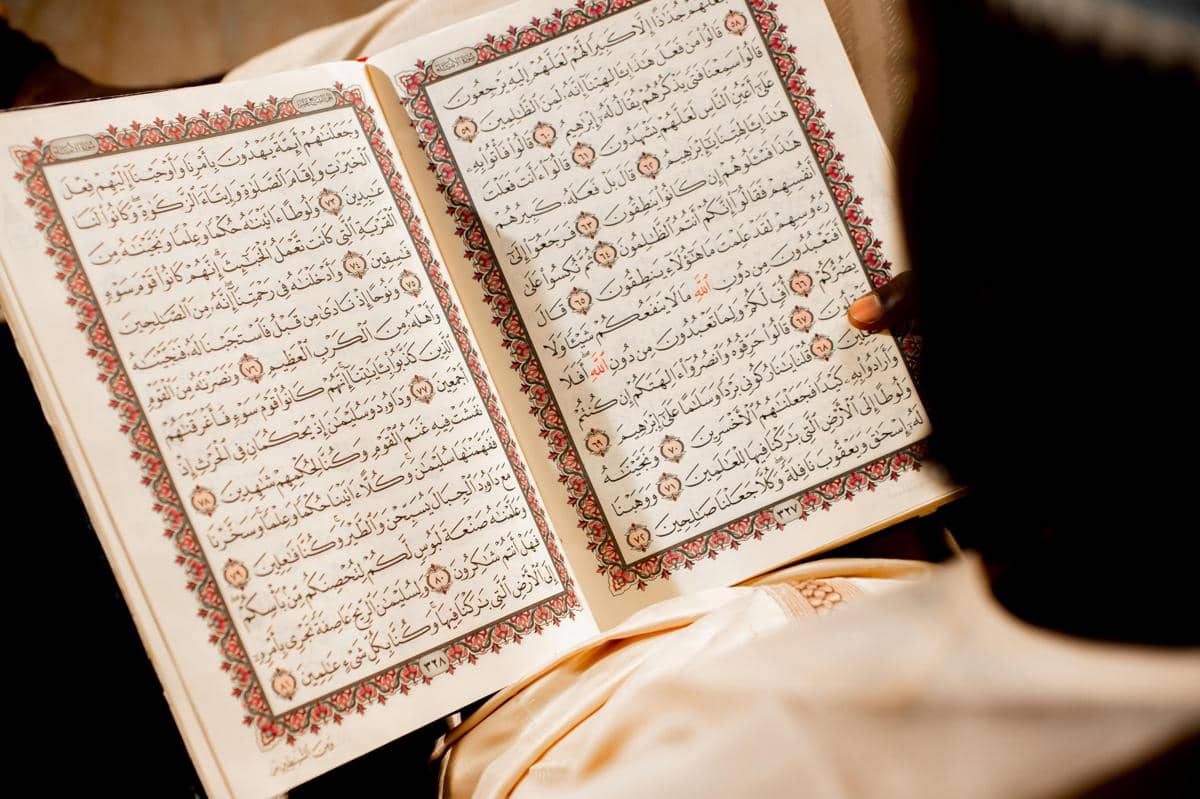 سُورَةُ الأَنبِيَاءِ
جُذَٰذًا إِلَّا كَبِيرًا لَّهُمْ لَعَلَّهُمْ إِلَيْهِ يَرْجِعُونَ
٥٨ قَالُوا۟ مَن فَعَلَ هَٰذَا بِـَٔالِهَتِنَآ إِنَّهُۥ لَمِنَ ٱلظَّٰلِمِينَ ٥٩
قَالُوا۟ سَمِعْنَا فَتًى يَذْكُرُهُمْ يُقَالُ لَهُۥٓ إِبْرَٰهِيمُ ٦٠ قَالُوا۟ فَأْتُوا۟ بِهِۦ
عَلَىٰٓ أَعْيُنِ ٱلنَّاسِ لَعَلَّهُمْ يَشْهَدُونَ ٦١ قَالُوٓا۟ ءَأَنتَ فَعَلْتَ
هَٰذَا بِـَٔالِهَتِنَا يَٰٓإِبْرَٰهِيمُ ٦٢ قَالَ بَلْ فَعَلَهُۥ كَبِيرُهُمْ
هَٰذَا فَسْـَٔلُوهُمْ إِن كَانُوا۟ يَنطِقُونَ ٦٣ فَرَجَعُوٓا۟ إِلَىٰٓ
أَنفُسِهِمْ فَقَالُوٓا۟ إِنَّكُمْ أَنتُمُ ٱلظَّٰلِمُونَ ٦٤ ثُمَّ نُكِسُوا۟ عَلَىٰ
رُءُوسِهِمْ لَقَدْ عَلِمْتَ مَا هَٰٓؤُلَآءِ يَنطِقُونَ ٦٥ قَالَ
أَفَتَعْبُدُونَ مِن دُونِ ٱللَّهِ مَا لَا يَنفَعُكُمْ شَيْـًٔا وَلَا
يَضُرُّكُمْ ٦٦ أُفٍّ لَّكُمْ وَلِمَا تَعْبُدُونَ مِن دُونِ ٱللَّهِ أَفَلَا
٦٧ قَالُوا۟ حَرِّقُوهُ وَٱنصُرُوٓا۟ ءَالِهَتَكُمْ إِن كُنتُمْ
٦٨ قُلْنَا يَٰنَارُ كُونِى بَرْدًا وَسَلَٰمًا عَلَىٰٓ إِبْرَٰهِيمَ ٦٩
وَأَرَادُوا۟ بِهِۦ كَيْدًا فَجَعَلْنَٰهُمُ ٱلْأَخْسَرِينَ ٧٠ وَنَجَّيْنَٰهُ
وَلُوطًا إِلَى ٱلْأَرْضِ ٱلَّتِى بَٰرَكْنَا فِيهَا لِلْعَٰلَمِينَ ٧١ وَوَهَبْنَا
لَهُۥٓ إِسْحَٰقَ وَيَعْقُوبَ نَافِلَةً وَكُلًّا جَعَلْنَا صَٰلِحِينَ ٧٢
٣٢٧
سُورَةُ الأَنبِيَاءِ
وَجَعَلْنَٰهُمْ أَئِمَّةً يَهْدُونَ بِأَمْرِنَا وَأَوْحَيْنَآ إِلَيْهِمْ فِعْلَ
ٱلْخَيْرَٰتِ وَإِقَامَ ٱلصَّلَوٰةِ وَإِيتَآءَ ٱلزَّكَوٰةِ وَكَانُوا۟ لَنَا
عَٰبِدِينَ ٧٣ وَلُوطًا ءَاتَيْنَٰهُ حُكْمًا وَعِلْمًا وَنَجَّيْنَٰهُ مِنَ
ٱلْقَرْيَةِ ٱلَّتِى كَانَت تَّعْمَلُ ٱلْخَبَٰٓئِثَ إِنَّهُمْ كَانُوا۟ قَوْمَ سَوْءٍ
فَٰسِقِينَ ٧٤ وَأَدْخَلْنَٰهُ فِى رَحْمَتِنَآ إِنَّهُۥ مِنَ ٱلصَّٰلِحِينَ
٧٥ وَنُوحًا إِذْ نَادَىٰ مِن قَبْلُ فَٱسْتَجَبْنَا لَهُۥ فَنَجَّيْنَٰهُ
وَأَهْلَهُۥ مِنَ ٱلْكَرْبِ ٱلْعَظِيمِ ٧٦ وَنَصَرْنَٰهُ مِنَ ٱلْقَوْمِ
ٱلَّذِينَ كَذَّبُوا۟ بِـَٔايَٰتِنَآ إِنَّهُمْ كَانُوا۟ قَوْمَ سَوْءٍ فَأَغْرَقْنَٰهُمْ
أَجْمَعِينَ ٧٧ وَدَاوُۥدَ وَسُلَيْمَٰنَ إِذْ يَحْكُمَانِ فِى ٱلْحَرْثِ إِذْ
نَفَشَتْ فِيهِ غَنَمُ ٱلْقَوْمِ وَكُنَّا لِحُكْمِهِمْ شَٰهِدِينَ ٧٨
فَفَهَّمْنَٰهَا سُلَيْمَٰنَ وَكُلًّا ءَاتَيْنَا حُكْمًا وَعِلْمًا وَسَخَّرْنَا
مَعَ دَاوُۥدَ ٱلْجِبَالَ يُسَبِّحْنَ وَٱلطَّيْرَ وَكُنَّا فَٰعِلِينَ ٧٩
وَعَلَّمْنَٰهُ صَنْعَةَ لَبُوسٍ لَّكُمْ لِتُحْصِنَكُم مِّنۢ بَأْسِكُمْ
فَهَلْ أَنتُمْ شَٰكِرُونَ ٨٠ وَلِسُلَيْمَٰنَ ٱلرِّيحَ عَاصِفَةً تَجْرِى بِأَمْرِهِۦٓ
إِلَى ٱلْأَرْضِ ٱلَّتِى بَٰرَكْنَا فِيهَا وَكُنَّا بِكُلِّ شَىْءٍ عَٰلِمِينَ ٨١
٣٢٨
وَمِنَ ٱلشَّيَٰطِينِ مَن